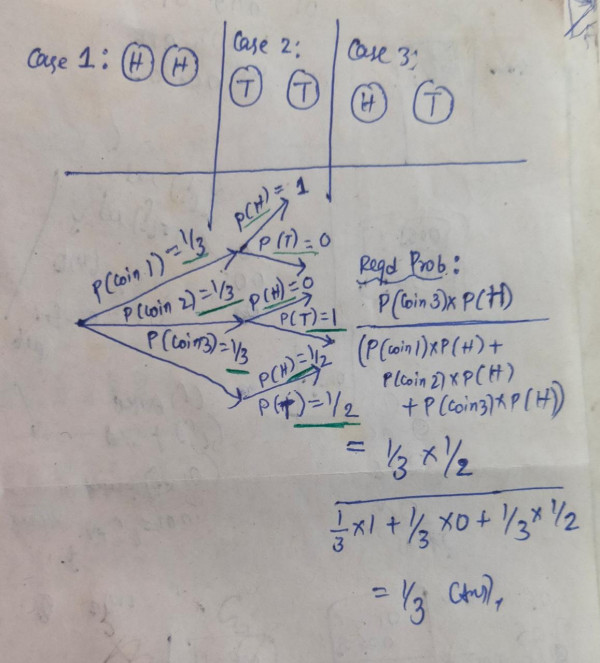 Case 1: H H
Case 2:
T T
Case 3:
H T
P(coin 1) = 1/3
P(H) = 1
P(T) = 0
P(coin 2) = 1/3
P(H) = 0
P(T) = 1
P(coin3) = 1/3
P(H) = 1/2
P(T) = 1/2
Reqd Prob:
P(coin3) × P(H)
(P(coin1) × P(H) +
P(coin2) × P(H)
+ P(coin3) × P(H))
= 1/3 × 1/2
1/3 × 1 + 1/3 × 0 + 1/3 × 1/2
= 1/3 (Ans),